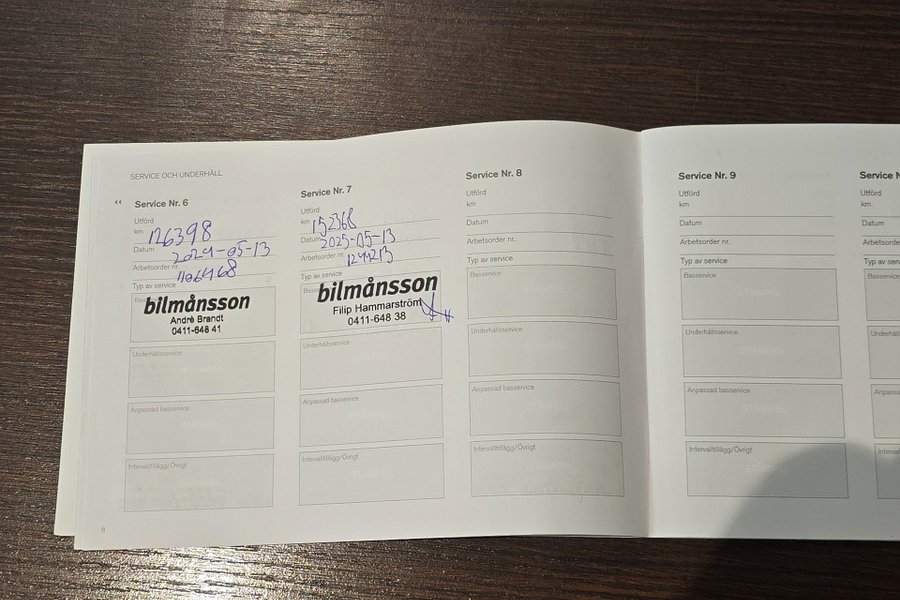 SERVICE OCH UNDERHÅLL
Service Nr. 6
Utförd
km 126398
Datum 2024-05-13
Arbetsorder nr. 1106468
Typ av service
bilmånsson
André Brandt
0411-648 41
Underhållsservice
STÄMPEL
Anpassad basservice
STÄMPEL
Intervalltillägg/Övrigt
STÄMPEL
8
Service Nr. 7
Utförd
km 152368
Datum 2025-05-13
Arbetsorder nr. 1244213
Typ av service
bilmånsson
Filip Hammarström
0411-648 38
Underhållsservice
STÄMPEL
Anpassad basservice
STÄMPEL
Intervalltillägg/Övrigt
STÄMPEL
Service Nr. 8
Utförd
km
Datum
Arbetsorder nr.
Typ av service
Basservice
STÄMPEL
Underhållsservice
STÄMPEL
Anpassad basservice
STÄMPEL
Intervalltillägg/Övrigt
STÄMPEL
Service Nr. 9
Utförd
km
Datum
Arbetsorder nr.
Typ av service
Basservice
STÄMPEL
Underhållsservice
STÄMPEL
Anpassad basservice
STÄMPEL
Intervalltillägg/Övrigt
STÄMPEL
Service
Utförd
km
Datum
Arbetsorder
Typ av service